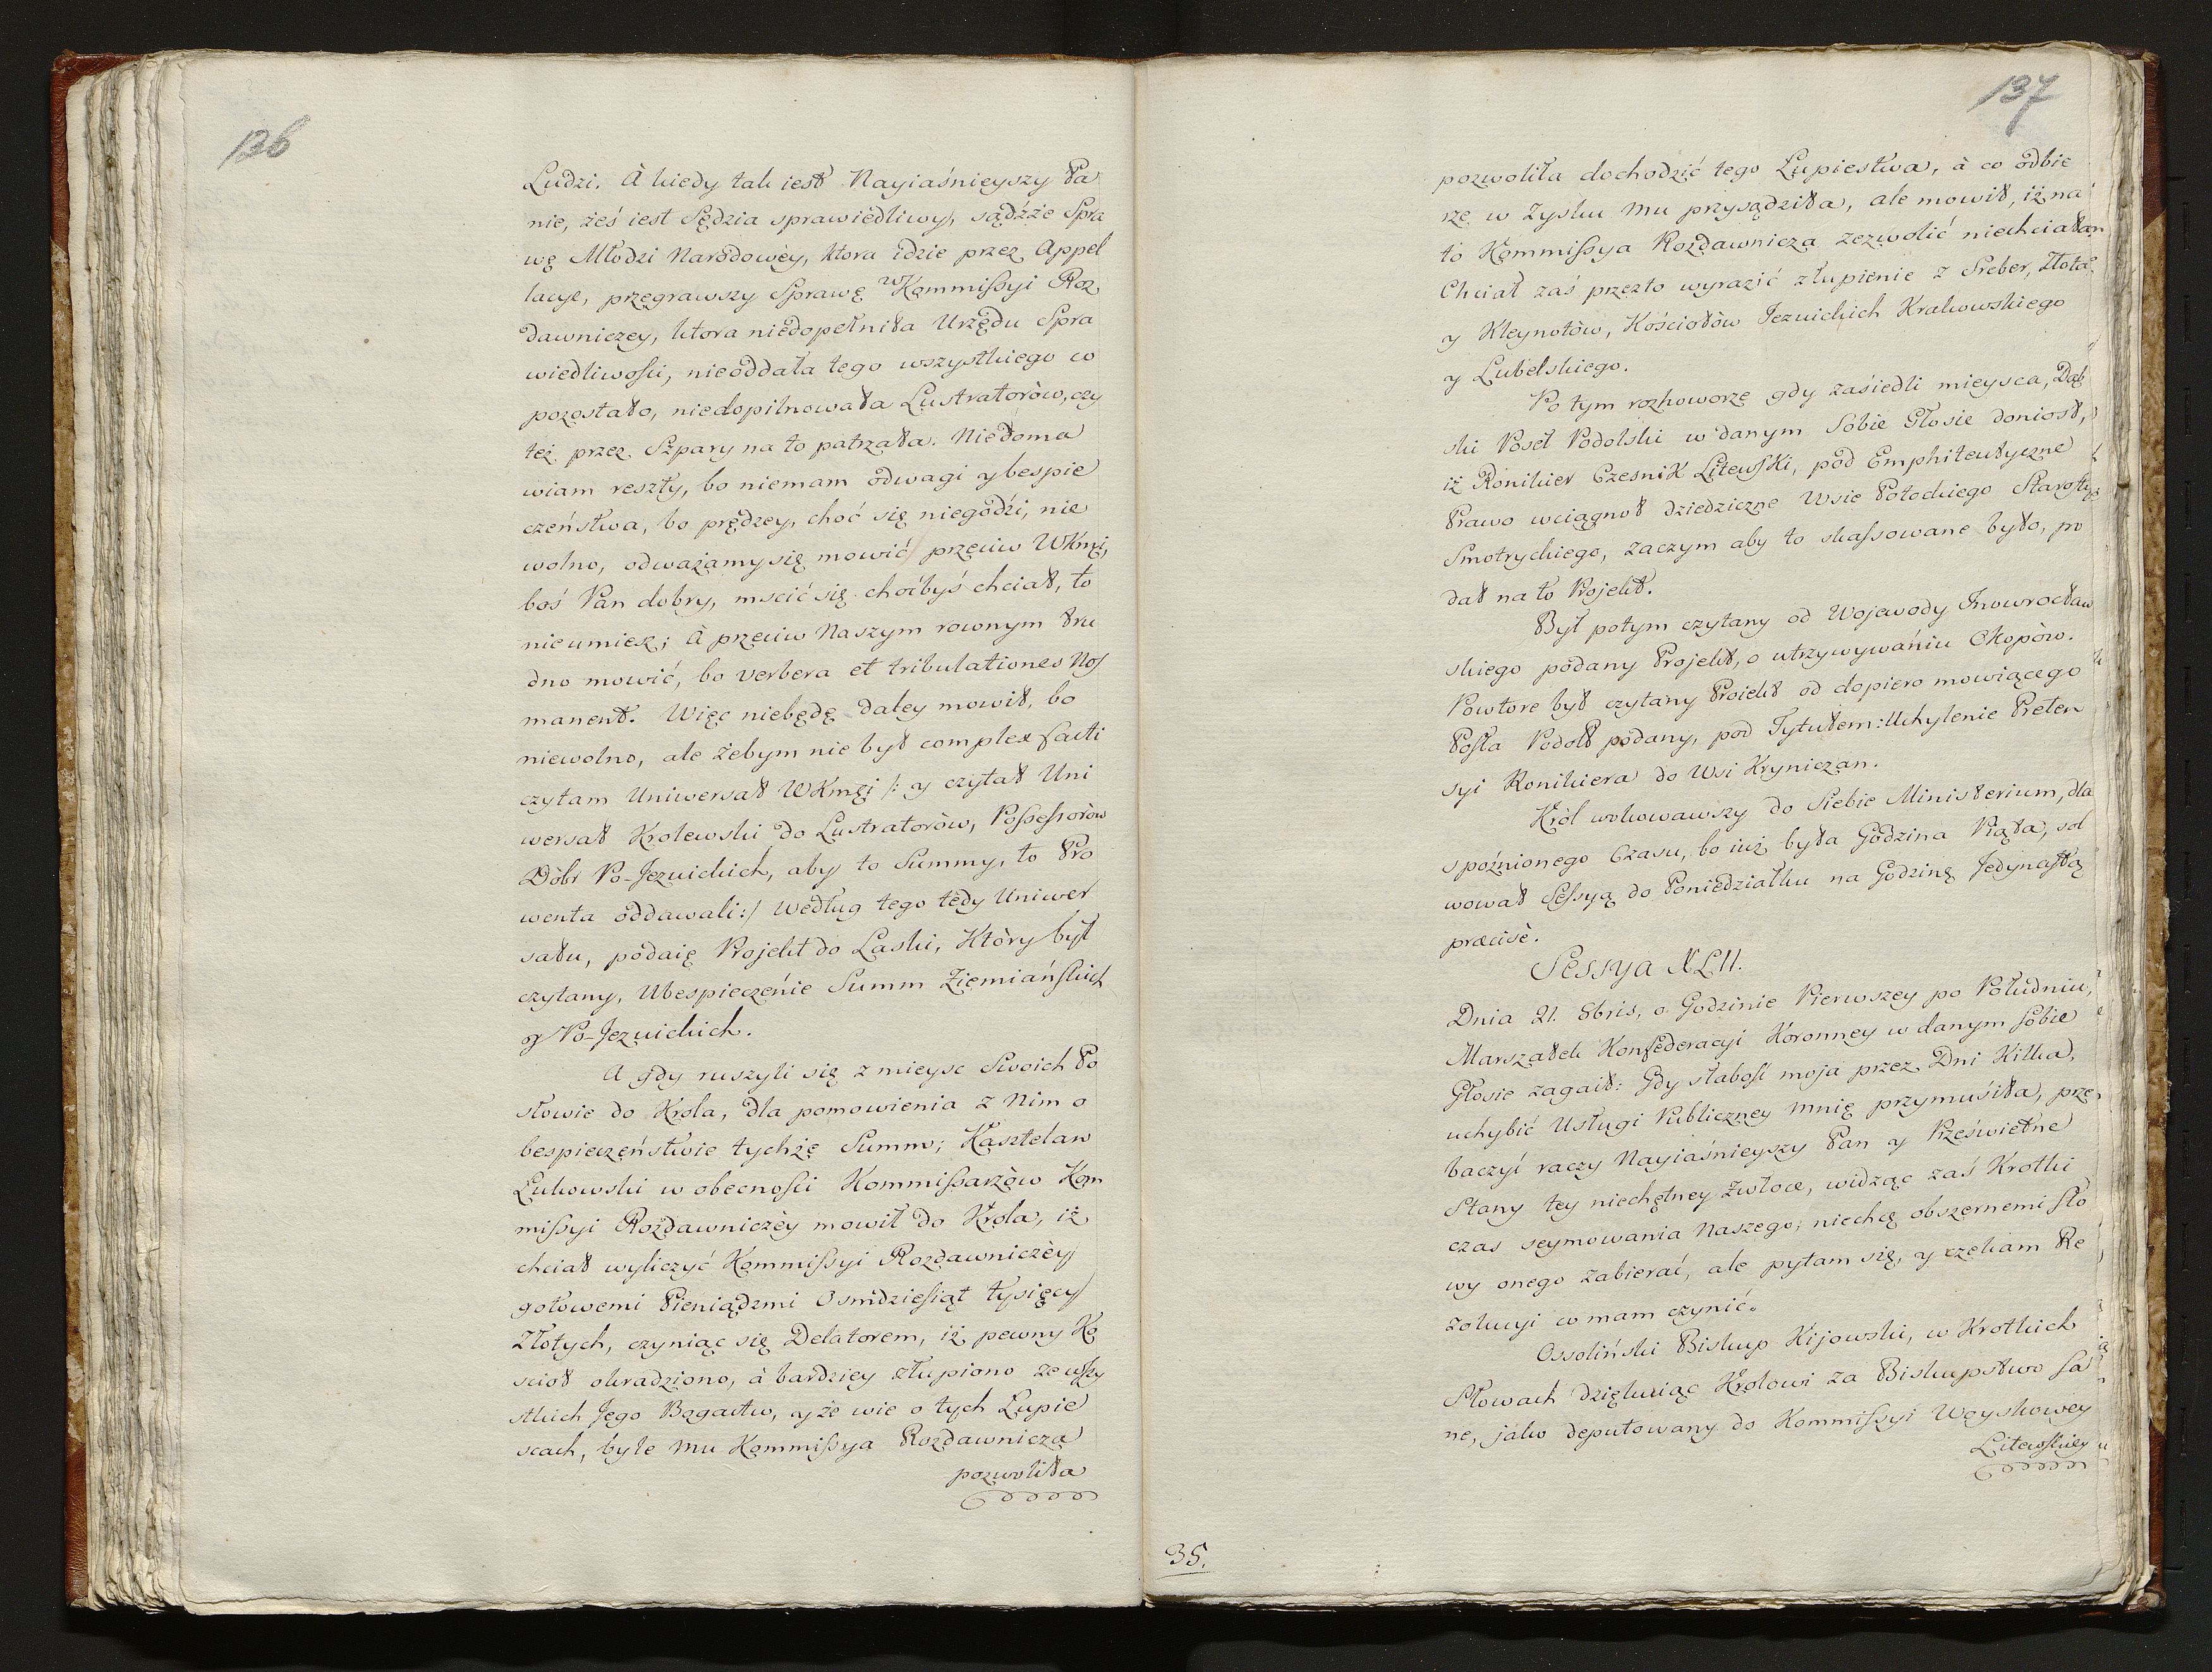 136
Ludzi. À kiedy tak iest Nayiaśnieyszy Pa
nie, żeś iest Sędzia sprawiedliwy, sądźże Spra
wę Młodzi Narodowèy, ktora idzie przez Appel
lacye, przegrawszy Sprawę w Kommissyi Roz
dawniczey, ktora niedopełniła Urzędu Spra
wiedliwości, nieoddała tego wszystkiego co
pozostało, niedopilnowała Lustratoròw, czy
też przez Szpary na to patrzała. Niedoma
wiam reszty, bo niemam odwagi y bespie
czeństwa, bo prędzey, choć się niegodzi, nie
wolno, odważamy się mowić przeciw WKmći,
boś Pan dobry, mscić się choćbyś chciał, to
nieumiesz; à przeciw Naszym rownym tru
dno mowić, bo verbera et tribulationes Nos
manent. Więc niebędę daley mowił, bo
niewolno, ale żebym nie był complex facti
czytam Uniwersał WKmći /: y czytał Uni
wersał Krolewski do Lustratoròw, Possessoròw
Dòbr Po-Jezuickich, aby to Summy, to Pro
wenta oddawali :/ według tego tedy Uniwer
sału, podaię Projekt do Laski, Ktòry był
czytany, Ubespieczenie Summ Ziemiańskich
y Po-Jezuickich.
A gdy ruszyli się z mieysc Swoich Po
słowie do Krola, dla pomowienia z Nim o
bespieczeństwie tychże Summ; Kasztelan
Łukowski w obecności Kommissarzòw Kom
missyi Rozdawniczèy mowił do Krola, iż
chciał wyliczyć Kommissyi Rozdawniczèy
gotowemi Pieniądzmi Osmdziesiąt tysięcy
Złotych, czyniąc się Delatorem, iż pewny Ko
scioł okradziono, à bardziey złupiono ze wszy
stkich Jego Bogactw, y że wie o tych Łupie
scach, byle mu Kommissya Rozdawnicza
pozwoliła
137
pozwoliła dochodzić tego Łupiestwa, à co odbie
rze w Zysku mu przysądziła, ale mowił, iż na
to Kommissya Rozdawnicza zezwolić niechciała.
Chciał zaś przezto wyrazić złupienie z Sreber, Złota
y Kleynotòw, Kościołòw Jezuickich Krakowskiego
y Lubelskiego.
Po tym rozhoworze gdy zasiedli mieysca, Dęb
ski Poseł Podolski w danym Sobie Głosie doniosł,
iż Ronikier Czesnik Litewski, pod Emphiteutyczne
Prawo wciągnoł dziedziczne Wsie Potockiego Starosty
Smotryckiego, zaczym aby to skassowane było, po
dał na to Projekt.
Był potym czytany od Wojewody Inowrocław
skiego podany Projekt, o utrzywywaniu Okopòw.
Powtore był czytany Proiekt od dopiero mowiącego
Posła Podol: podany, pod Tytułem: Uchylenie Preten
syi Ronikiera do Wsi Kryniczan.
Kròl wokowawszy do Siebie Ministerium, dla
spoźnionego Czasu, bo iuż była Godzina Piąta, sol
wował Sessyą do Poniedziałku na Godzinę Jedynastą
præcisè.
Sessya XLII.
Dnia 21. 8bris, o Godzinie Pierwszey po Południu,
Marszałek Konfederacyi Koronney w danym sobie
Głosie zagaił: Gdy słabość moja przez Dni Kilka,
uchybić Usługi Publiczney mnie przymusiła, prze
baczyć raczy Nayiaśnieyszy Pan y Prześwietne
Stany tey niechętney zwłoce, widząc zaś Krotki
czas seymowania Naszego, niechcę obszernemi sło
wy onego zabierać, ale pytam się, y czekam Re
zolucyi co mam czynić.
Ossoliński Biskup Kijowski, w Krotkich
Słowach dziękuiąc Krolowi za Biskupstwo sa
ne, jako deputowany do Kommissyi Woyskowey
Litewskiey
35.